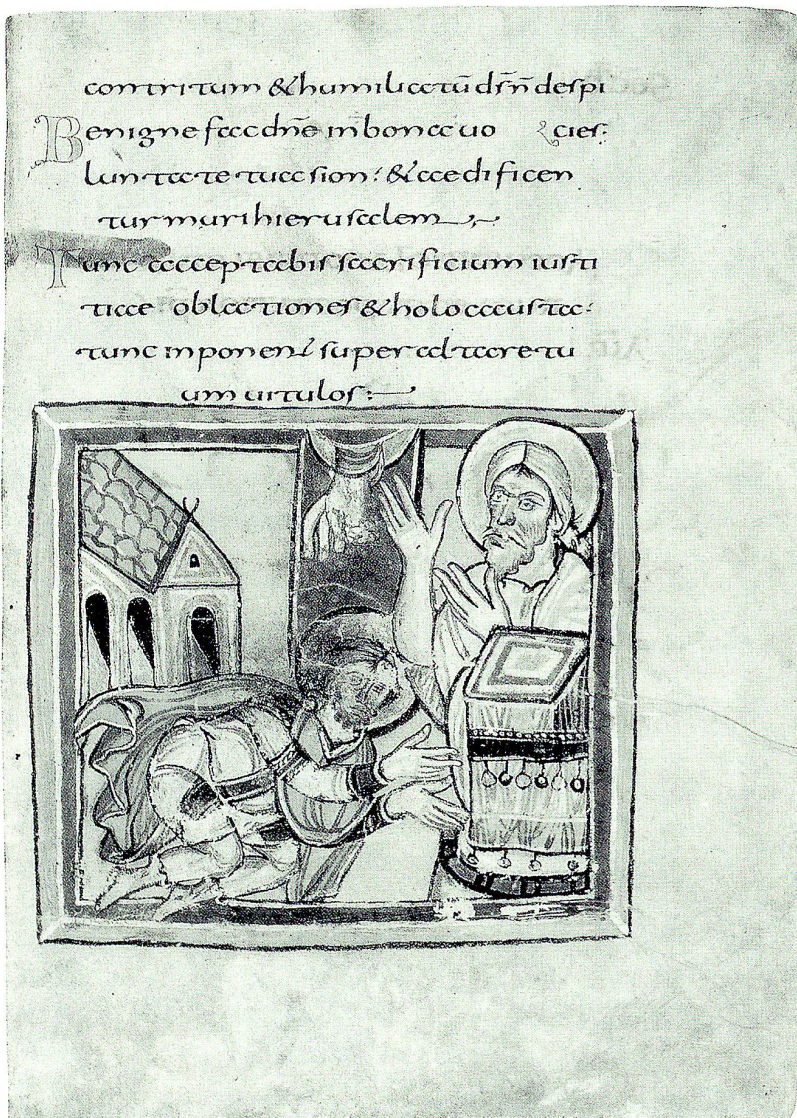 contritum & humiliatū dſ n̄ deſpi
Benigne fac dn̄e in bona uo cies:
luntate tua sion: & aedificen
tur muri hieruſalem
Tunc acceptabis ſacrificium iuſti
tiae oblationeſ & holocauſta:
tunc inponent ſuper altare tu
um uitulos: